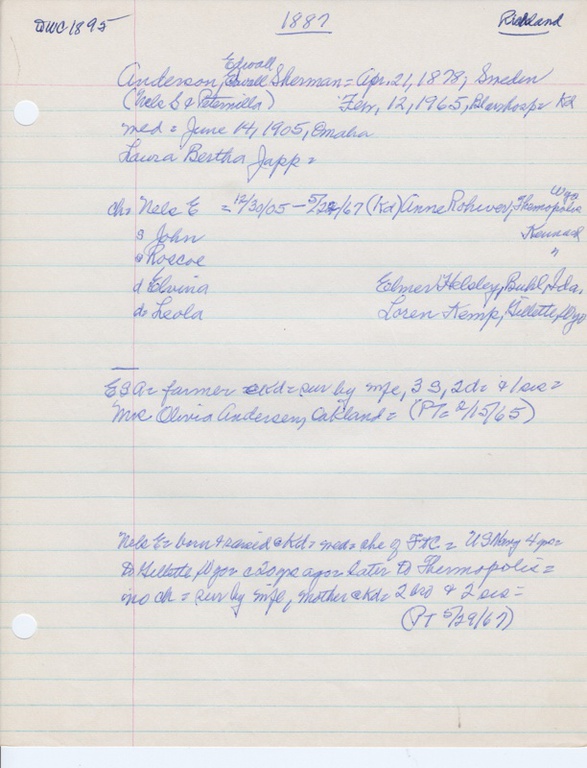 DWC 1895 1887 Richland
Edwall
Anderson, Sherman = Apr. 21, 1878, Sweden
(Nels S & Peternilla) Febr, 12, 1965, Blairhosp = Kd
med = June 14, 1905, Omaha
Laura Bertha Japp =
Wyo
ch = Nels E = 12/30/05 – 5/24/67 (Kd) Anne Rohwer, Thermopolis
s John Kennard
s Roscoe "
d Elvina Elmer Helsley, Buhl, Ida.
d = Leola Loren Kemp, Gillette, Wyo
ESA = farmer @ Kd = sur by wife, 3 S, 2 d = & 1 sis =
Mrs Olivia Andersen, Oakland = (PT = 2/15/65)
Nels E = born & raised @ Kd = med = che of = US Navy 4 yrs =
to Gillette, Wyo = c 20 yrs ago = later to Thermopolis =
no ch = sur by wife, mother @ Kd = 2 bro & 2 sis =
(PT 5/29/67)